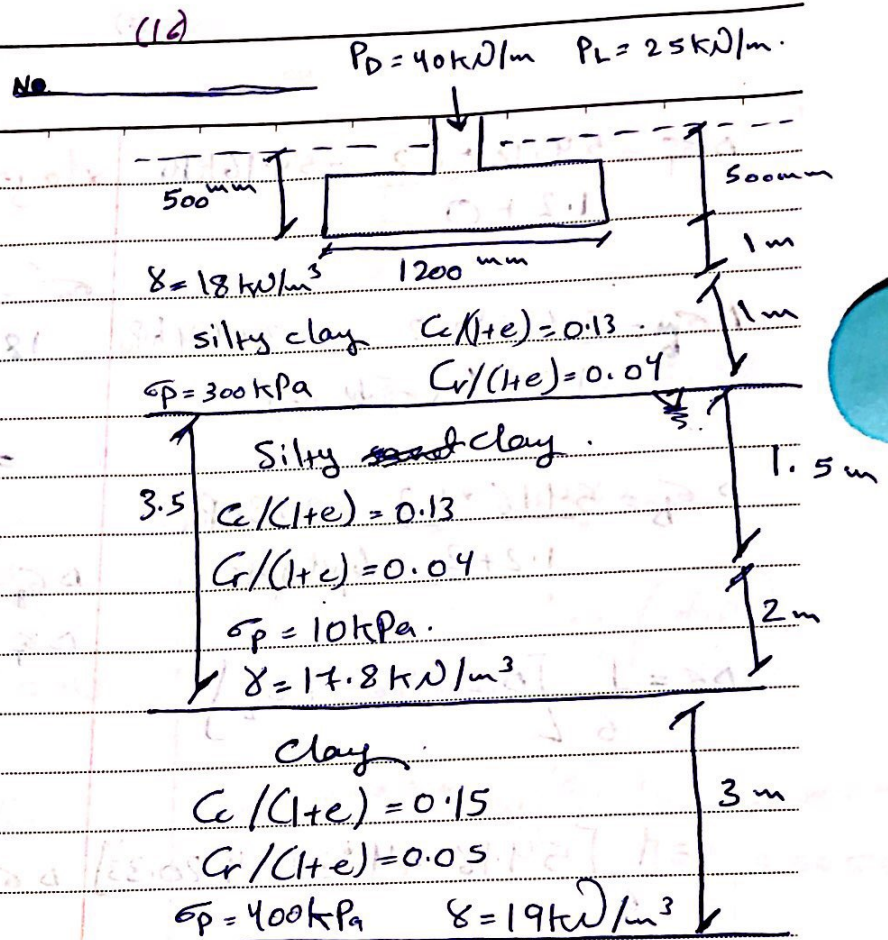 (1d)
No.
PD = 40kN/m PL = 25kN/m.
500mm
500mm
1m
1200 mm
γ = 18 kN/m³
silty clay Cc/(1+e) = 0.13
1m
σp = 300 kPa Cr/(1+e) = 0.04
Silty clay.
1.5m
3.5
Cc/(1+e) = 0.13
Cr/(1+e) = 0.04
σp = 10kPa.
2m
γ = 17.8 kN/m³
Clay
3m
Cc/(1+e) = 0.15
Cr/(1+e) = 0.05
σp = 400kPa γ = 19kN/m³